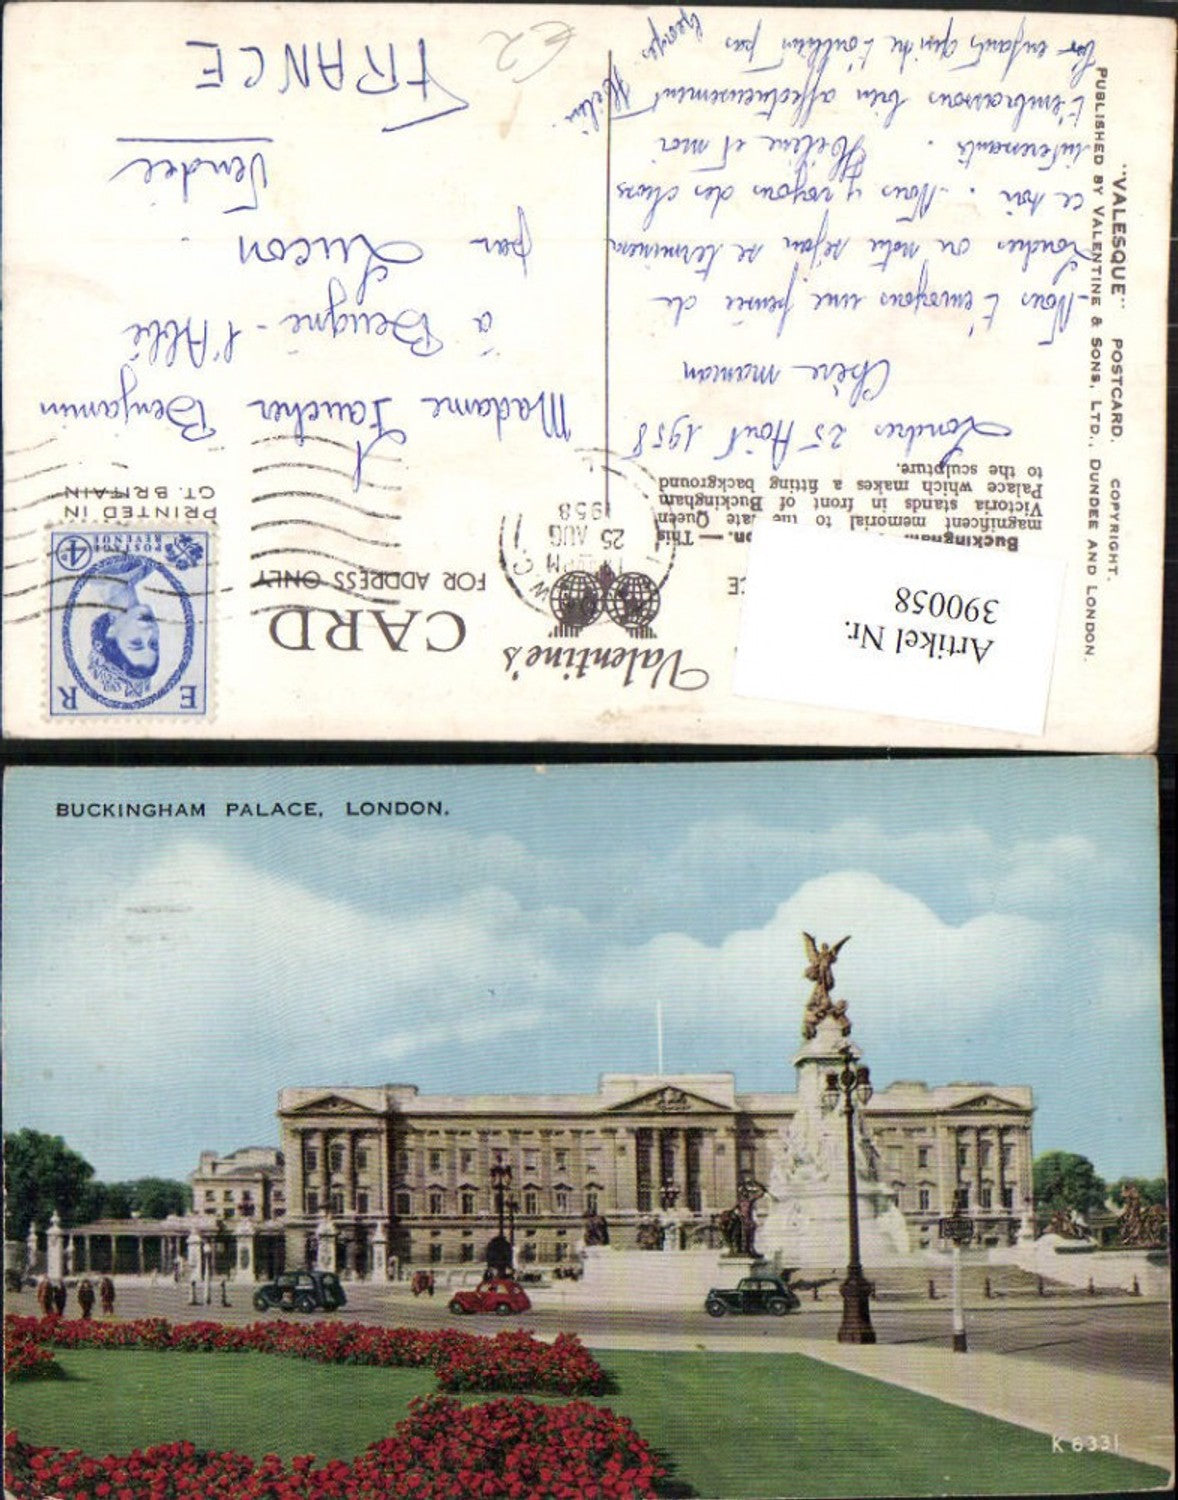 Artikel Nr.
390058
Valentine's
CARD
FOR ADDRESS ONLY
E R
POSTAGE REVENUE
4D
PRINTED IN
GT. BRITAIN
W.C.1
PM
25 AUG
1958
CE
Buckingham on. — This
magnificent memorial to the late Queen
Victoria stands in front of Buckingham
Palace which makes a fitting background
to the sculpture.
Londres 25 Août 1958
Chère maman
Nous t'envoyons une pensée de
Londres où notre séjour se terminera
ce soir. Nous y voyons des choses
intéressants. Hélène et moi
t'embrassons bien affectueusement
les enfants qui ne t'oublient pas
Hélène
Georges
Madame Faucher Benjamin
à Beugné-l'Abbé
par Luçon
Vendée
FRANCE
€2
"VALESQUE" POSTCARD. COPYRIGHT.
PUBLISHED BY VALENTINE & SONS, LTD., DUNDEE AND LONDON.
BUCKINGHAM PALACE, LONDON.
K 6331